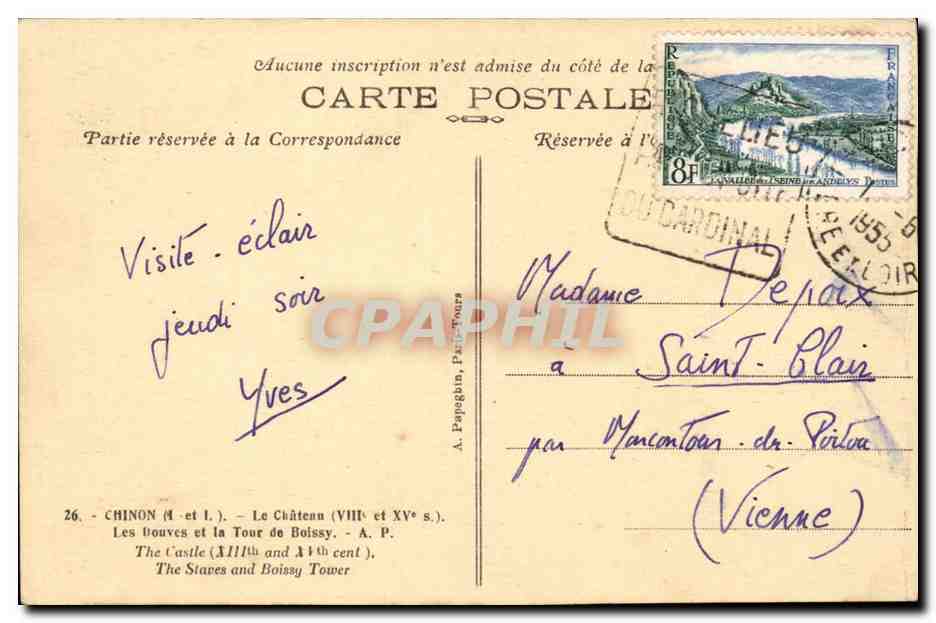 Aucune inscription n'est admise du côté de la
CARTE POSTALE
Partie réservée à la Correspondance
Réservée à l'
REPUBLIQUE FRANÇAISE
8F
LA VALLEE DE LA SEINE AUX ANDELYS POSTES
DU CARDINAL
1955
RE ET LOIR
Visite-éclair
jeudi soir
Yves
Madame Depoix
à Saint-Clair
par Moncontour-du-Poitou
(Vienne)
CPAPHIL
A. Papeghin, Paris-Tours
26. - CHINON (I.-et L.). - Le Château (VIIIe et XVe s.).
Les Douves et la Tour de Boissy. - A. P.
The Castle (XIIIth and XVth cent).
The Staves and Boissy Tower